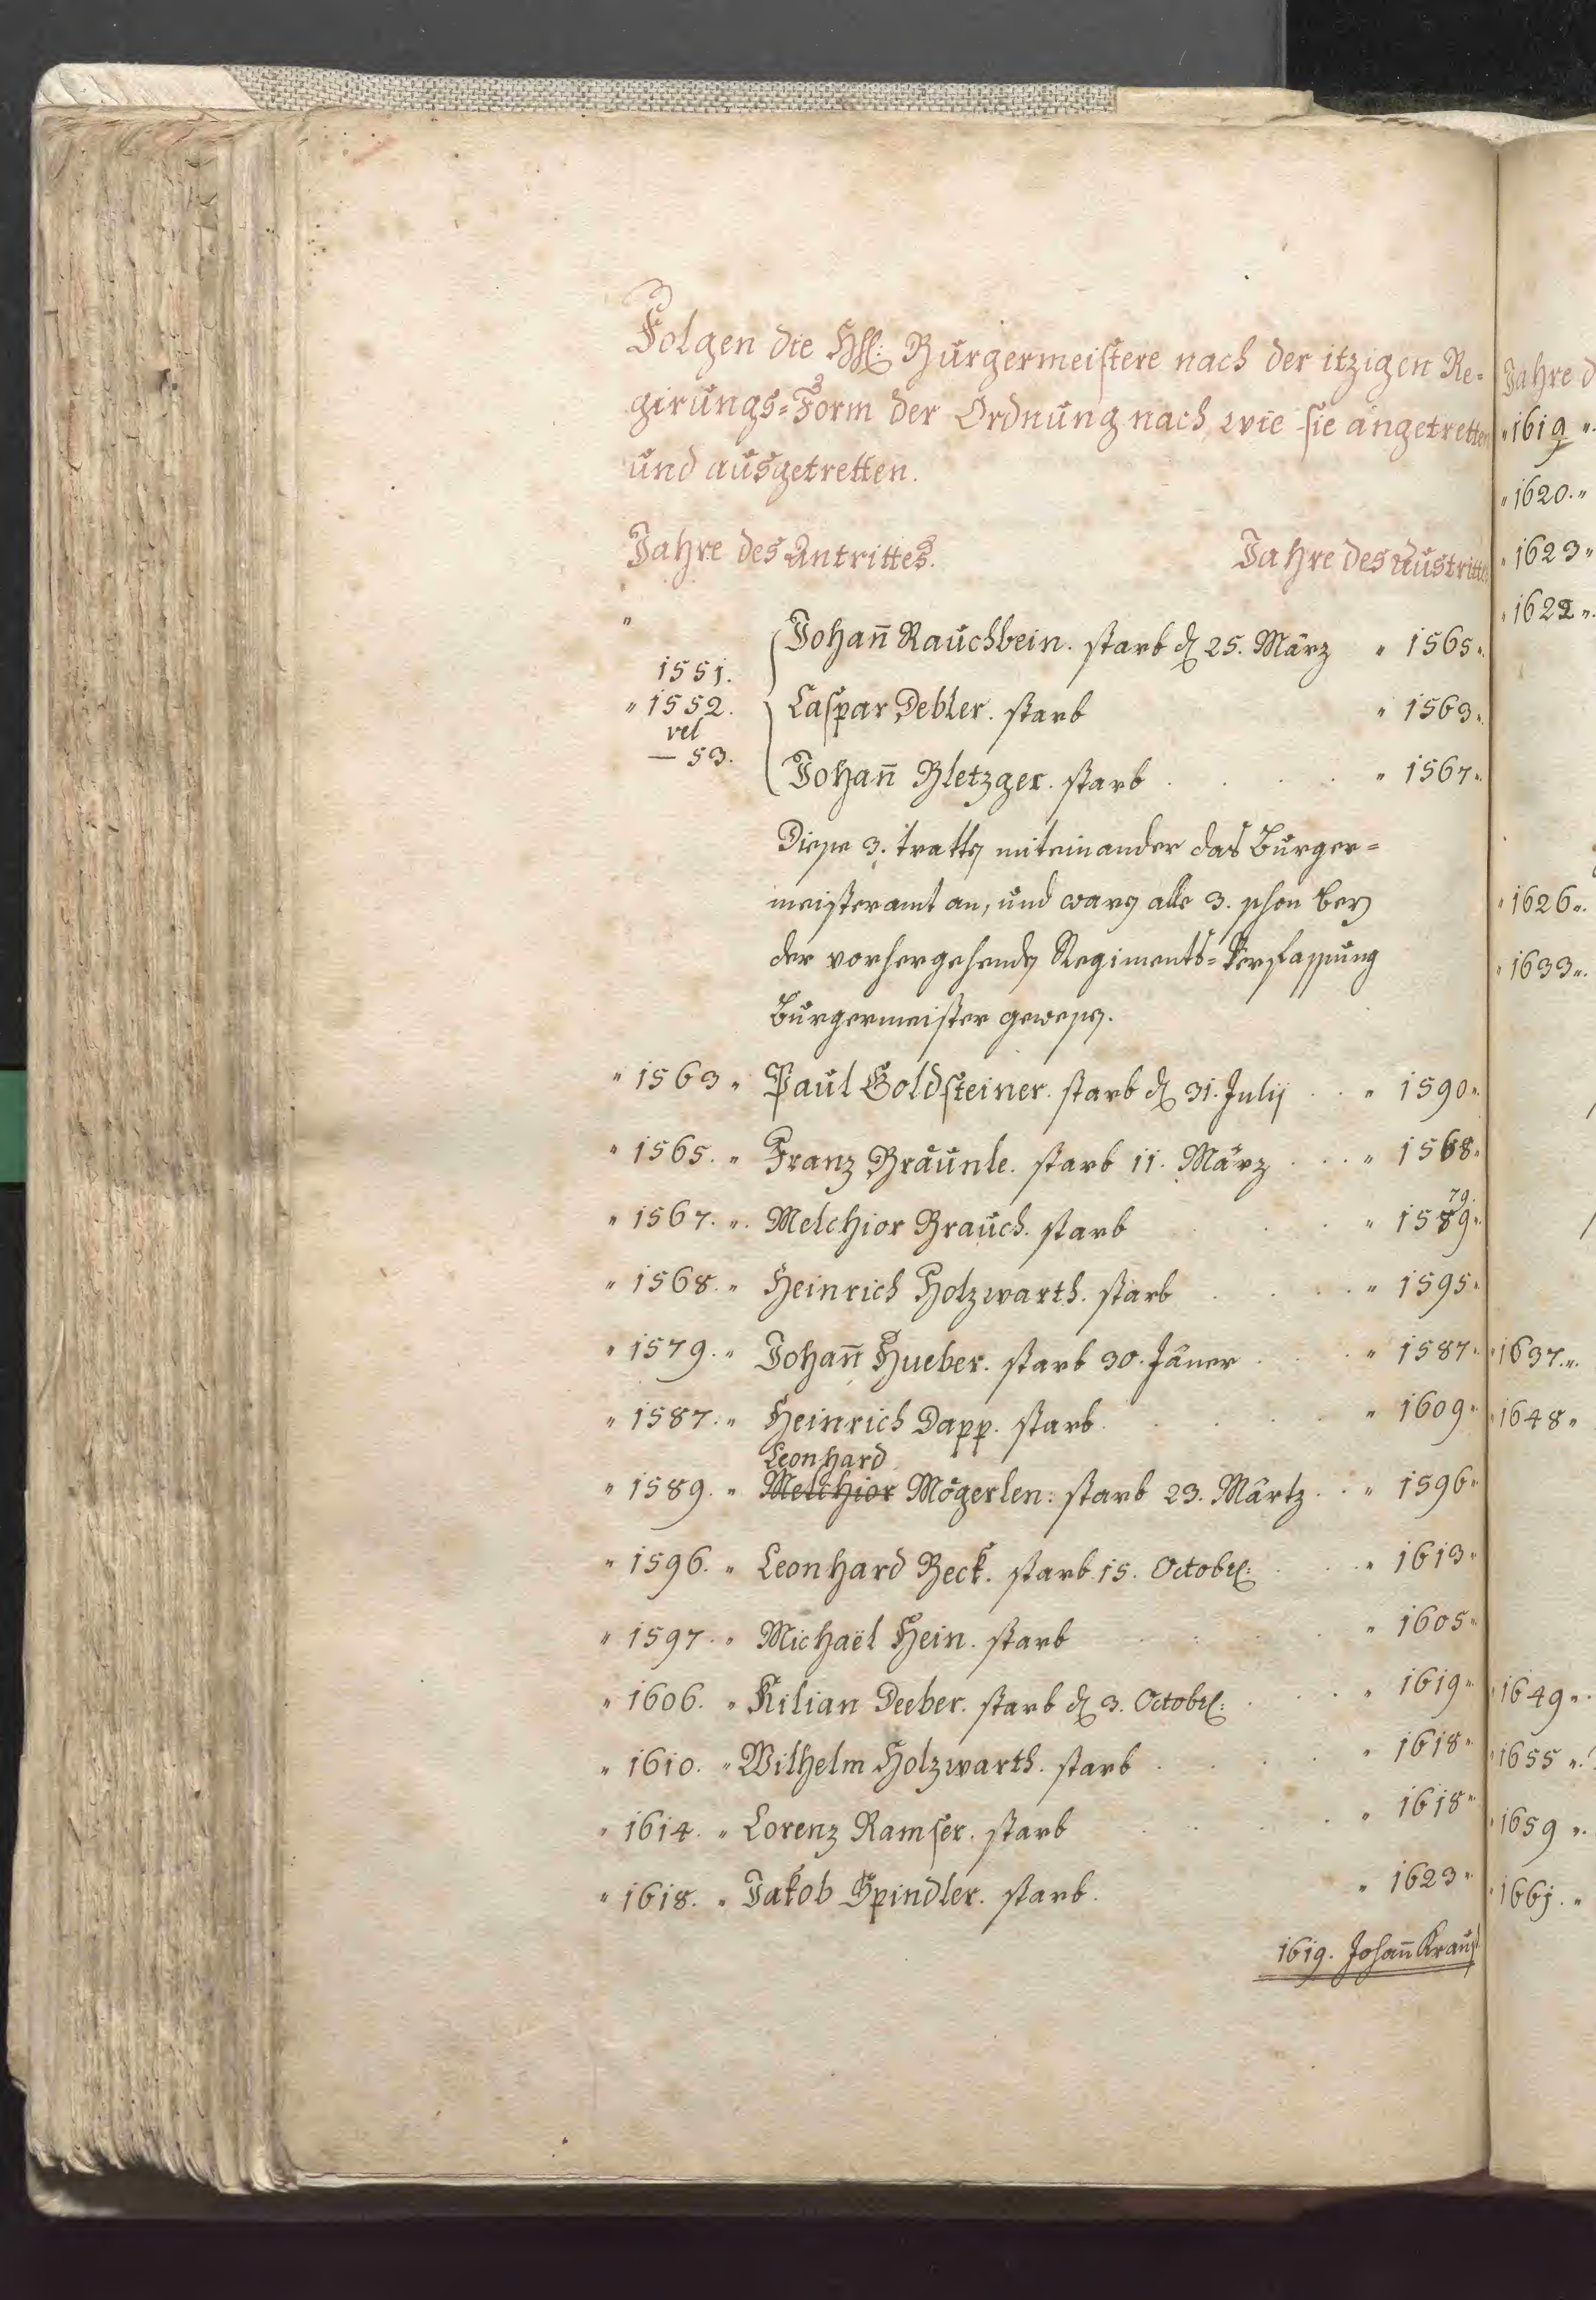 Folgen die Hh: Burgermeistere nach der itzigen Re-
girungs-Form der Ordnung nach wie sie angetretten
und ausgetretten.
Jahre des Antrittes. Jahre des Austrittes
1551. { Johañ Rauchbein. starb den 25. März " 1565.
" 1552. Caspar Debler. starb " 1563.
vel
— 53. Johañ Bletzger. starb . . . . " 1567.
Diese 3. tratten miteinander das Burger-
meisteramt an, und waren alle 3. schon bey
der vorhergehenden Regiments-Verfassung
Burgermeister gewesen.
" 1563 " Paul Goldsteiner. starb den 31. Julij . . " 1590.
" 1565. " Franz Bräunle. starb 11. März . . . " 1568.
79.
" 1567. " Melchior Brauch. starb . . " 1589.
" 1568. " Heinrich Holzwarth. starb . . . " 1595.
" 1579. " Johañ Hueber. starb 30. Jäner . . . " 1587.
" 1587. " Heinrich Dapp. starb . . . . " 1609.
Leonhard
" 1589. " Melchior Mögerlen: starb 23. Märtz . . " 1596.
" 1596. " Leonhard Beck. starb 15. Octobr: . . . " 1613.
" 1597. " Michaël Hein. starb . . . . " 1605.
" 1606. " Kilian Deeber. starb den 3. Octobr: . . . " 1619.
" 1610. " Wilhelm Holzwarth. starb . . . . " 1618.
" 1614. " Lorenz Ramser. starb . . . . " 1618.
" 1618. " Jakob Spindler. starb. " 1623.
1619. Johañ Kraus
Jahre d
" 1619 "
" 1620. "
" 1623 "
" 1622 "
" 1626 "
" 1633 "
" 1637. "
" 1648 "
" 1649 "
" 1655 "
" 1659 "
" 1661. "